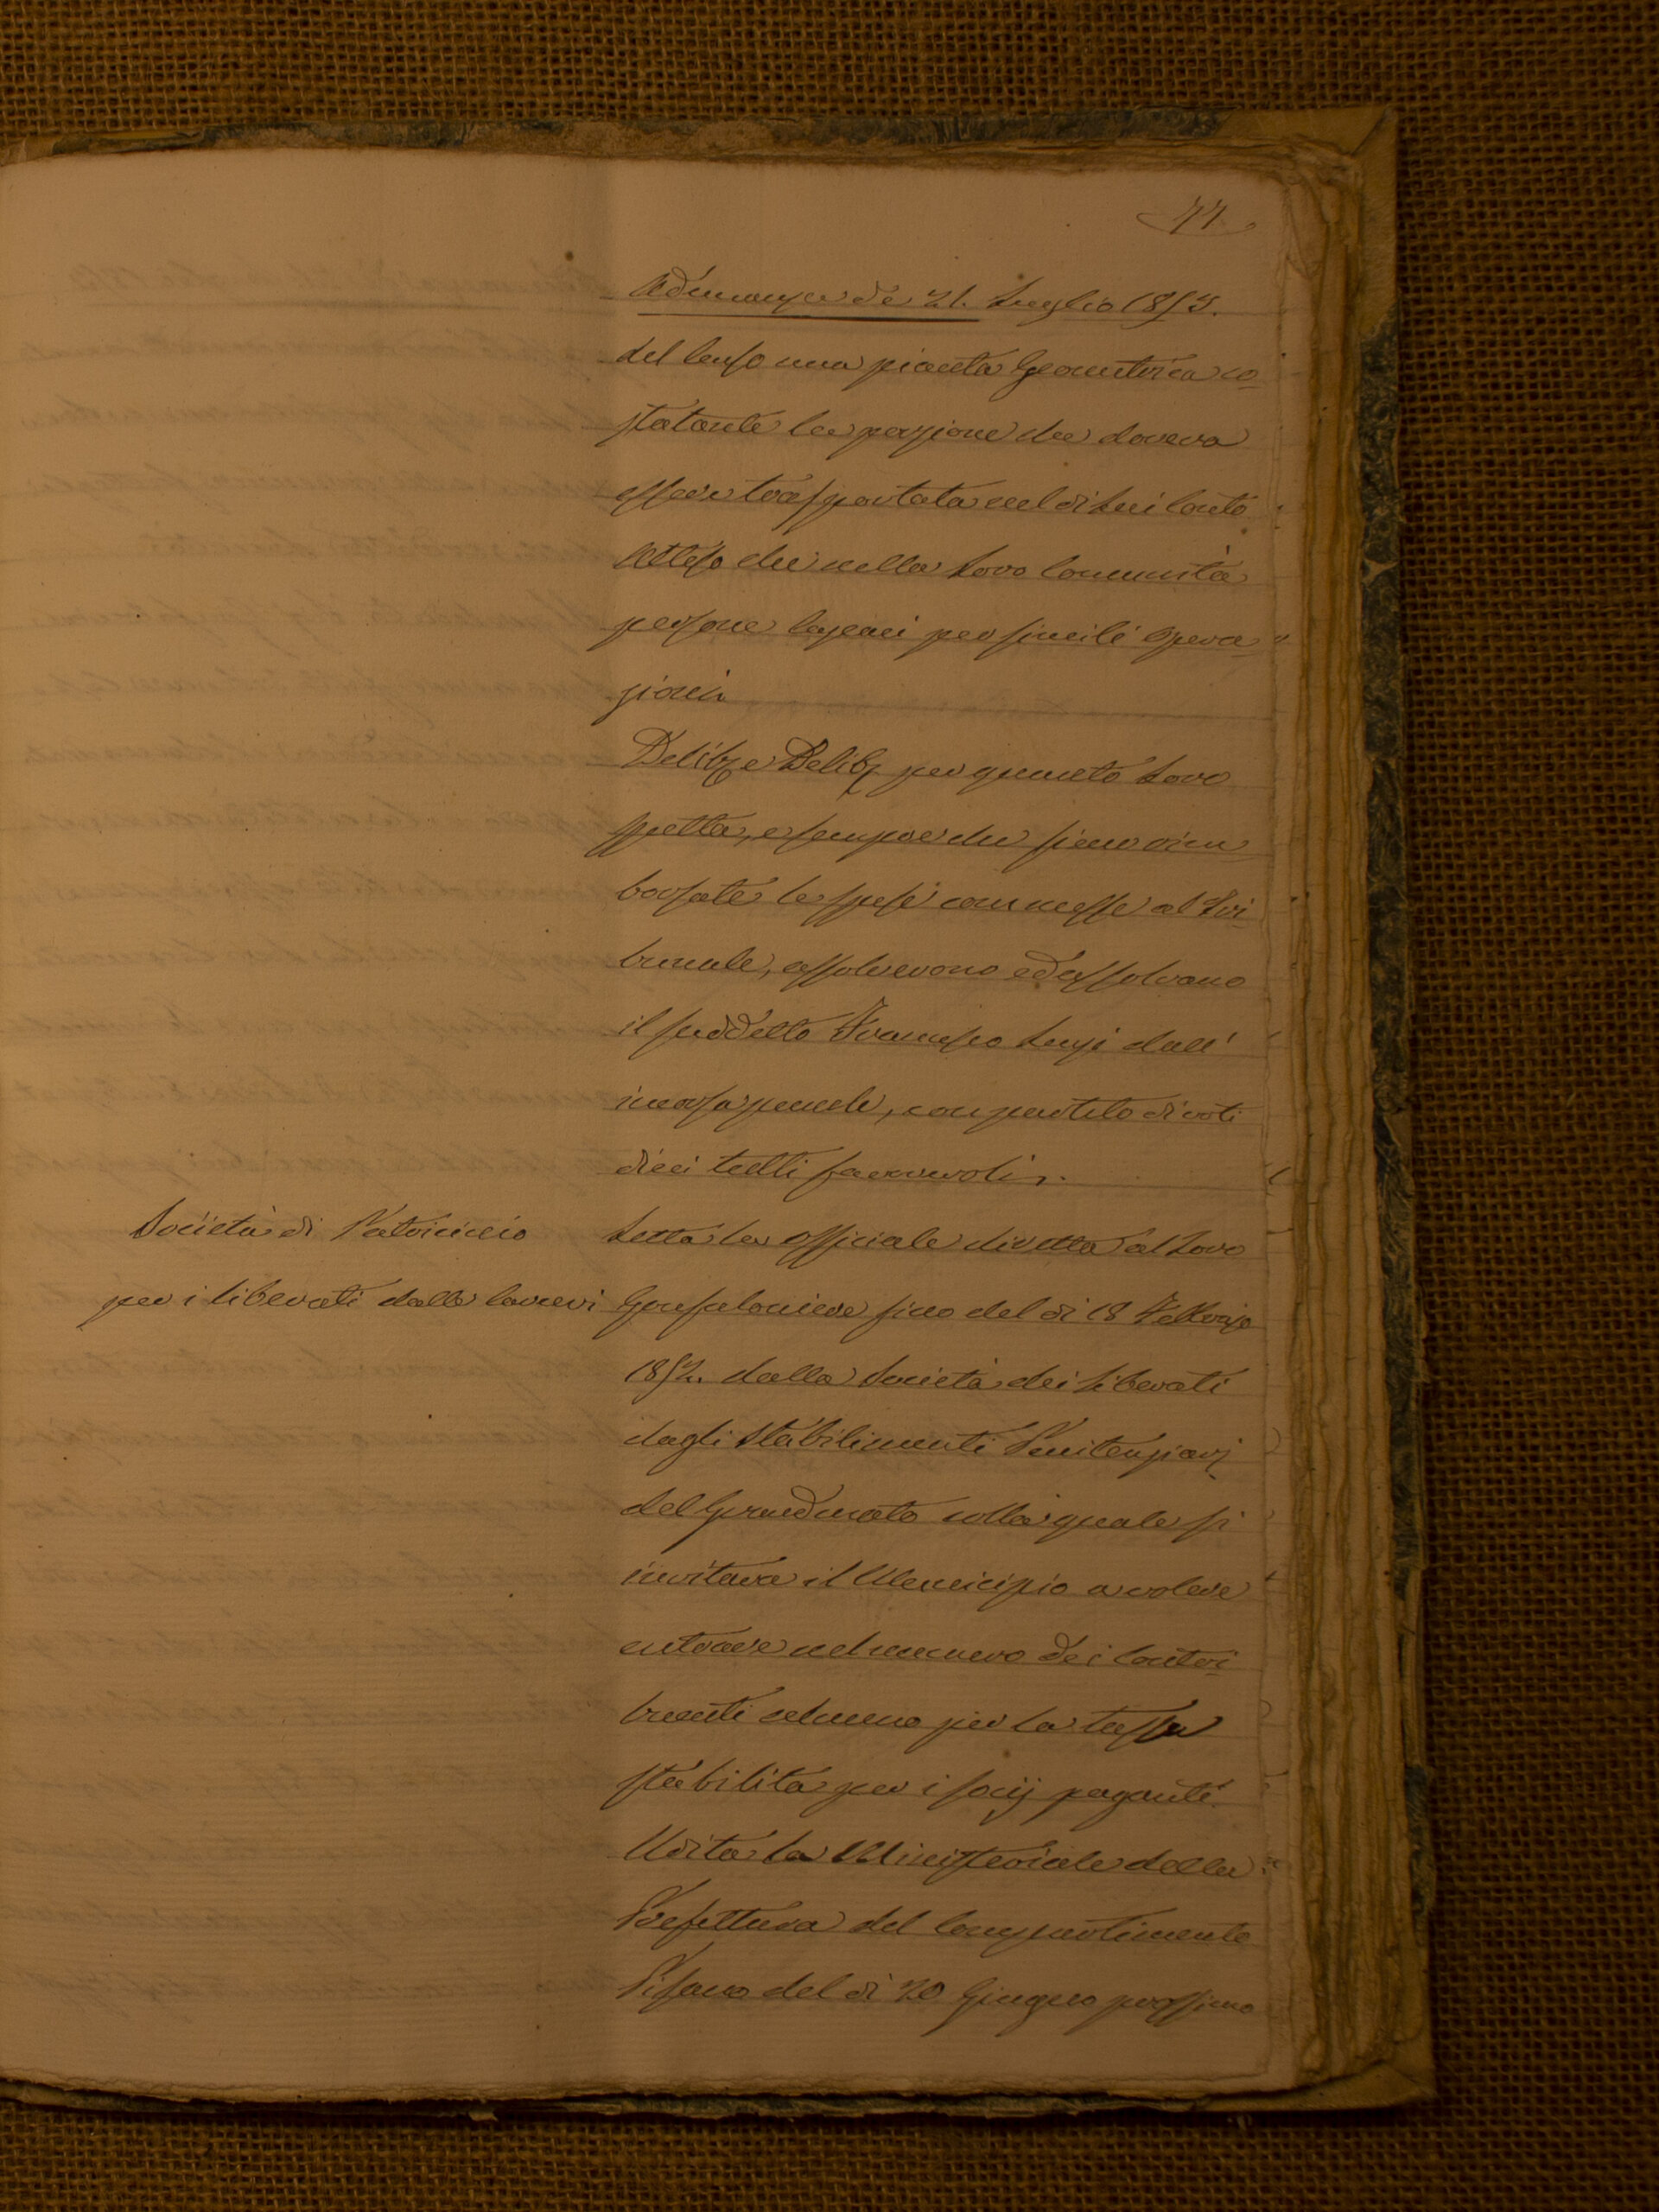 44
Adunanza de 21. Luglio 1853.
del Censo una pianta Geometrica co=
statante la porzione che doveva
essere trasportata nel di Lui Conto
Atteso che nella Loro Comunità
persone capaci per simili opera
zioni.
Delibe Delib per quanto Loro
spetta, e sempre che siano rim
borsate le spese commesse al Tri=
bunale, assolverono ed assolvano
il suddetto Francesco Lupi dall'
incorsa penale, con partito di voti
dieci tutti favorevoli.
Società di Patrocinio
per i liberati dalle Carceri
Letta la officiale diretta al Loro
Gonfaloniere sino del di 18 Febbrajo
1852. dalla Società dei Liberati
dagli Stabilimenti Penitenziarj
del Granducato colla quale si
invitava il Municipio a volere
entrare nel numero dei Contri
buenti almeno per la tassa
stabilita per i socij paganti.
Udita la Ministeriale della
Prefettura del Compartimento
Pisano del di 20 Giugno prossimo